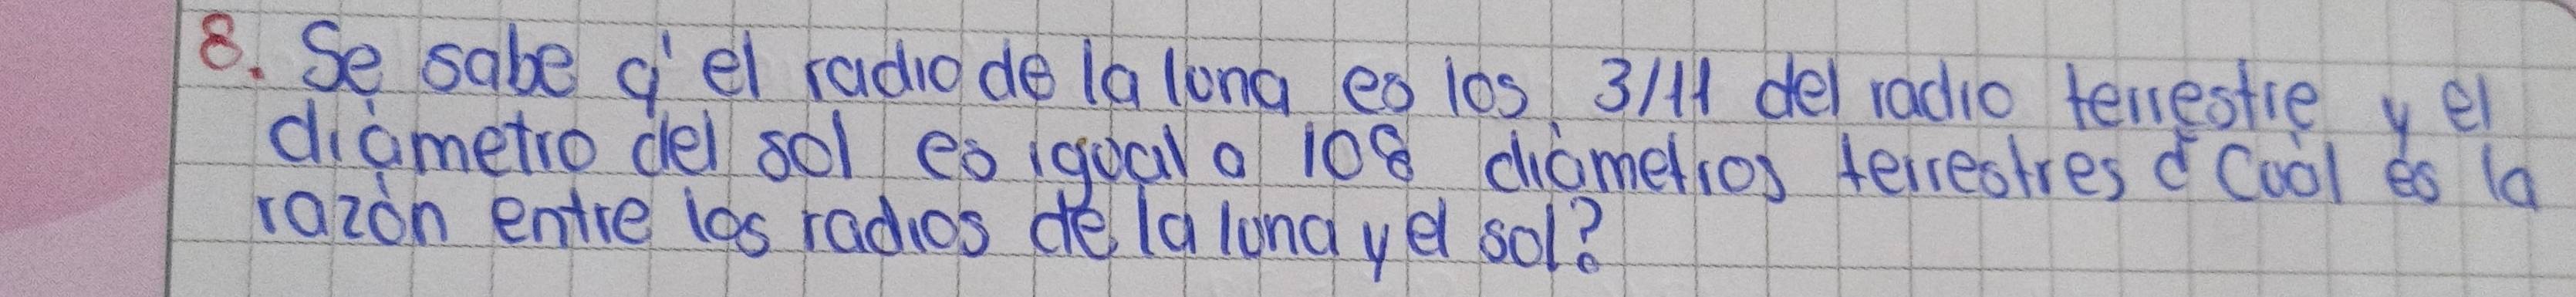 8. Se sabe q' el radio de la luna es los 3/11 del radio terrestre y el
diámetro del sol es igual a 108 diámetros terrestres ¿ Cuál es la
razón entre los radios de la luna y el sol?